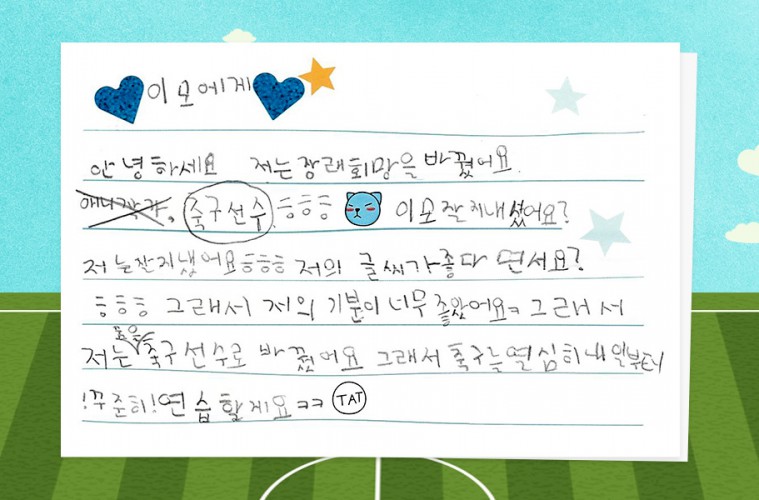 이모에게
안녕하세요 저는 장래희망을 바꿨어요.
애니작가, 축구선수 ㅎㅎㅎ 이모 잘 지내셨어요?
저는 잘지냈어요 ㅎㅎㅎ 저의 글씨가 좋다 면서요?
ㅎㅎㅎ 그래서 저의 기분이 너무 좋았어요ㅋ 그래서
저는 꿈을 축구선수로 바꿨어요 그래서 축구를 열심히 내일부터
!꾸준히! 연습할게요ㅋㅋ TAT